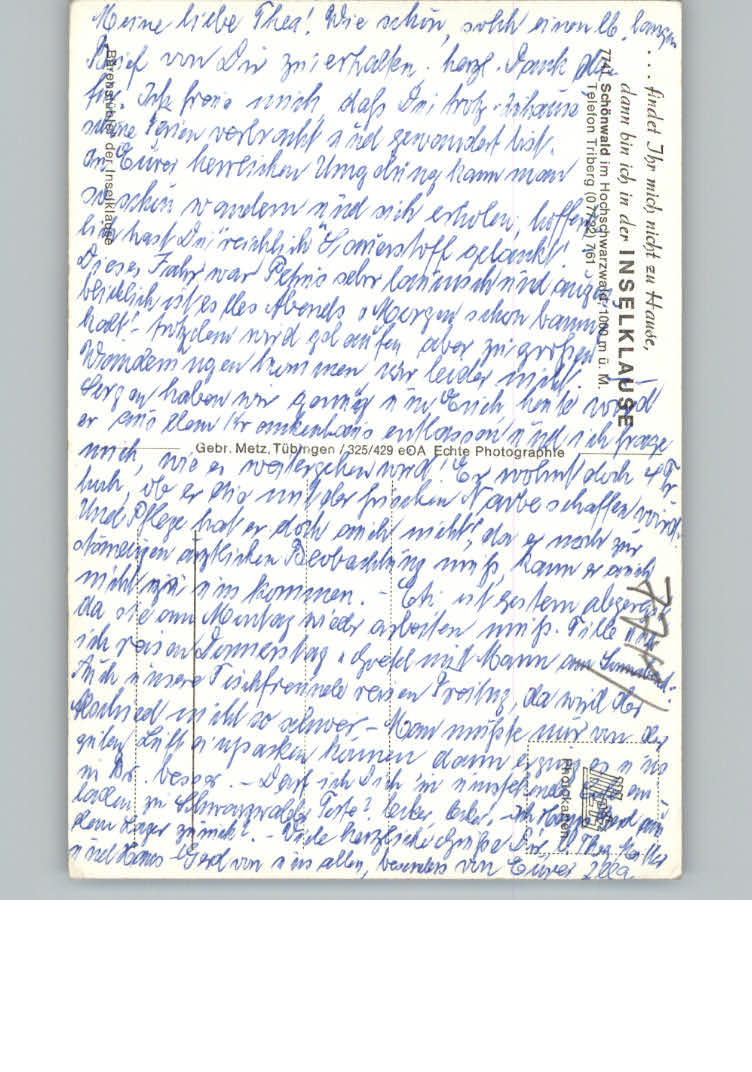 Meine liebe Thea! Wie schön, solch einen lb. langen
Brief von Dir zu erhalten. herzl. Dank da-
für. Ich freue mich, daß Du trotz Zuhause
Deine Ferien verbracht und gewandert bist.
In Eurer herrlichen Umgebung kann man
so schön wandern und sich erholen, hoffent-
lich hast Du reichlich "Sauerstoff getankt".
Dieses Jahr war Petrus sehr launisch und augen-
blicklich ist es des Abends u. Morgen schon
kalt! - trotzdem wird gelaufen, aber zu großen
Wanderungen kommen wir leider nicht!
Sorgen haben wir genug um Erich heute wird
er aus dem Krankenhaus entlassen und ich frage
mich, wie es weitergehen wird! Er wohnt doch
hoch, ob er die mit der frischen Narbe schaffen wird?
Und Pflege hat er doch auch nicht, da er noch zur
ständigen ärztlichen Beobachtung muß, kann er auch
nicht zu uns kommen. - ist gestern abgereist
da sie am Montag wieder arbeiten muß. und
ich reisen Donnerstag u. Gretel mit Mann am Sonnabend.
Auch unsere Tischfreunde reisen Freitag, da wird der
Abschied nicht so schwer - Man müßte nur von der
guten Luft einpacken können dann erging es uns
in besser. - Darf ich Dich in ein-
laden zu Schwarzwälder Torte? lecker, lecker. - Ist aus
dem Lager zurück? - Viele herzliche Grüße Dir, Thea,
und Hans Gerd von uns allen, besonders von Eurer
. . . findet Ihr mich nicht zu Hause,
dann bin ich in der INSELKLAUSE
7741 Schönwald im Hochschwarzwald, 1000 m ü. M.
Telefon Triberg (07722) 761
Bärenstüble in der Inselklause
Gebr. Metz, Tübingen / 325/429 eOA Echte Photographie
7741
Photokarten